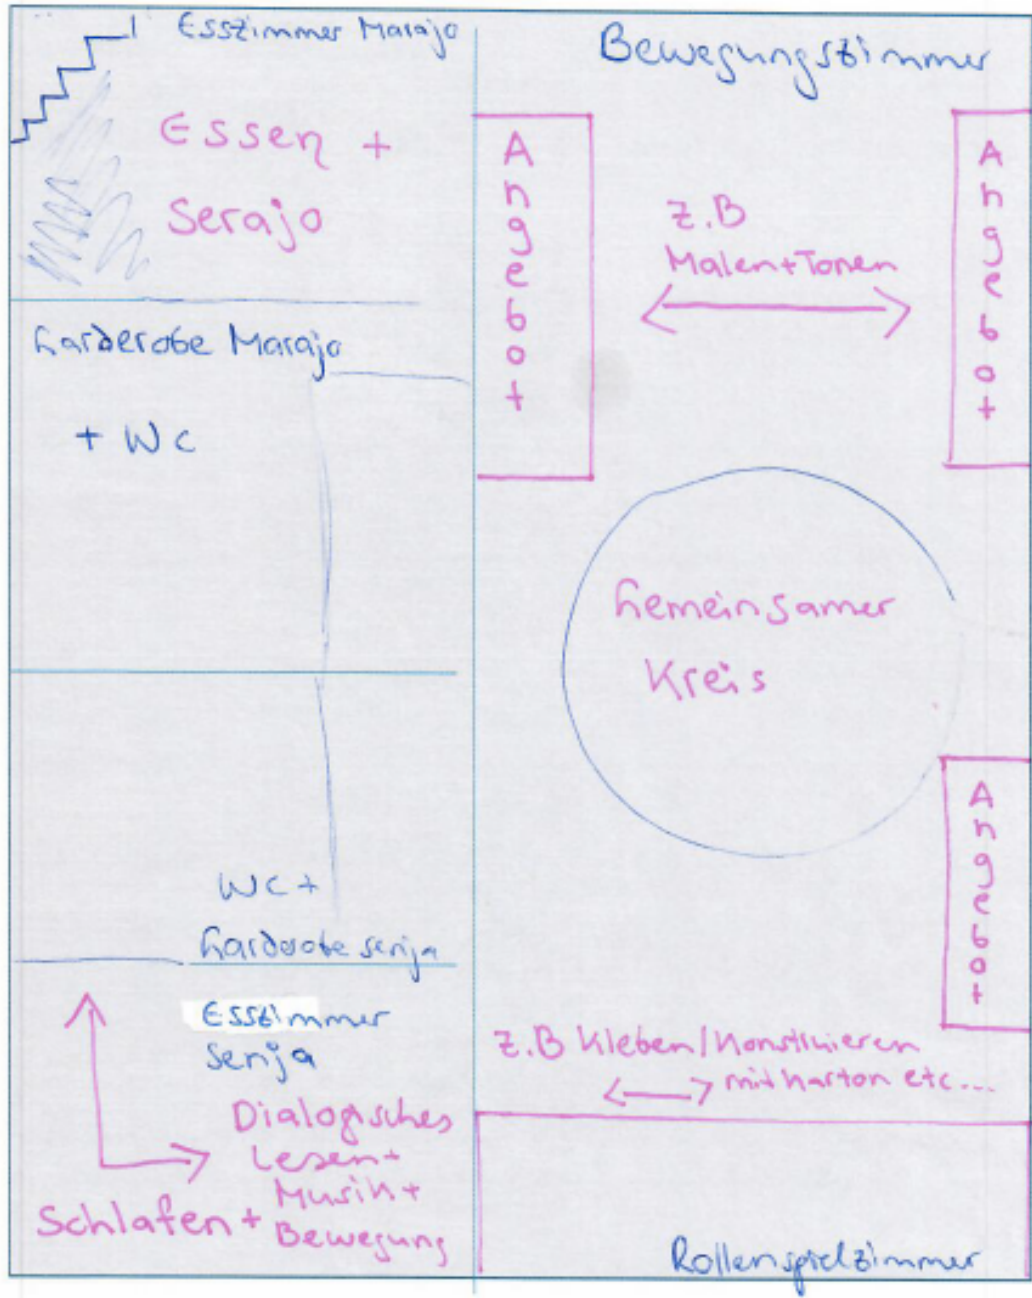 Esszimmer Marajo
Essen +
Serajo
Garderobe Marajo
+ WC
WC +
Garderobe Serija
Esszimmer
Serija
Dialogisches
Lesen +
Musik +
Schlafen + Bewegung
Bewegungszimmer
Angebot
Angebot
z.B
Malen + Tonen
Gemeinsamer
Kreis
Angebot
z.B Kleben / Konstruieren
mit Karton etc....
Rollenspielzimmer